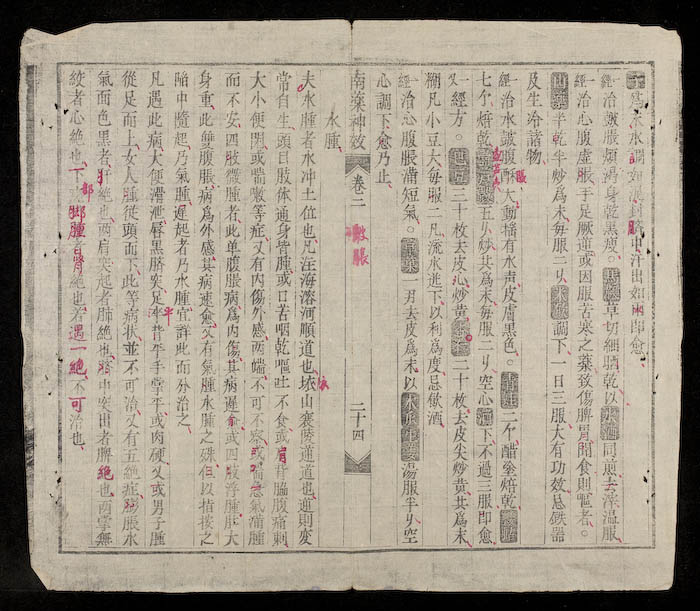 一治鼓脹煩渴身乾黑瘦。馬鞭草切細晒乾以水酒同煎去滓溫服
一治心腹虛脹手足厥逆或因服苦寒之藥致傷脾胃聞食則嘔者。
山藥半乾半炒爲末每服二匁米飲調下一日三服大有功效忌鉄器
及生冷諸物
一治水鼓腹脹大動搖有水声皮膚黑色。
七个焙乾五匁炒共爲末每服二匁空心酒下不過三服即愈
又一經方。巴豆三十枚去皮心炒黄杏仁二十枚去皮尖炒黄共爲末
糊凡小豆大每服二凡流水送下以利爲度忌飲酒
一經治心腹脹滿短氣。一刄去皮爲末以湯服半匁空
心調下愈乃止
南藥神效 卷三 鼓脹 二十四
水腫
夫水腫者水冲土位也凡注海溶河順道也㘬山襄陵逆道也逆則变
常自生頭目肢体通身皆腫或口苦咽乾嘔吐不食或肩背脇腹痛刺
大小便閉或喘嗽等症又有内傷外感两端不可不察或喘急氣滿腫
而不安四肢微腫者此单腹脹病爲内傷其病遲愈或四肢浮腫肚大
身重此雙腹脹病爲外感其病速愈又有氣腫水腫之殊但以指按之
陷中隨起乃氣腫遲起者乃水腫宜詳此而分治之
凡遇此病大便滑泄唇黑臍突足平背平手掌平或肉硬又或男子腫
從足而上女人腫從頭而下此等病狀並不可治又有五絶症膨脹水
氣面色黑者肝絶也两肩突起者肺絶也臍中突出者脾絶也两掌無
紋者心絶也下部脚腫者腎絶也若遇一絶不可治也